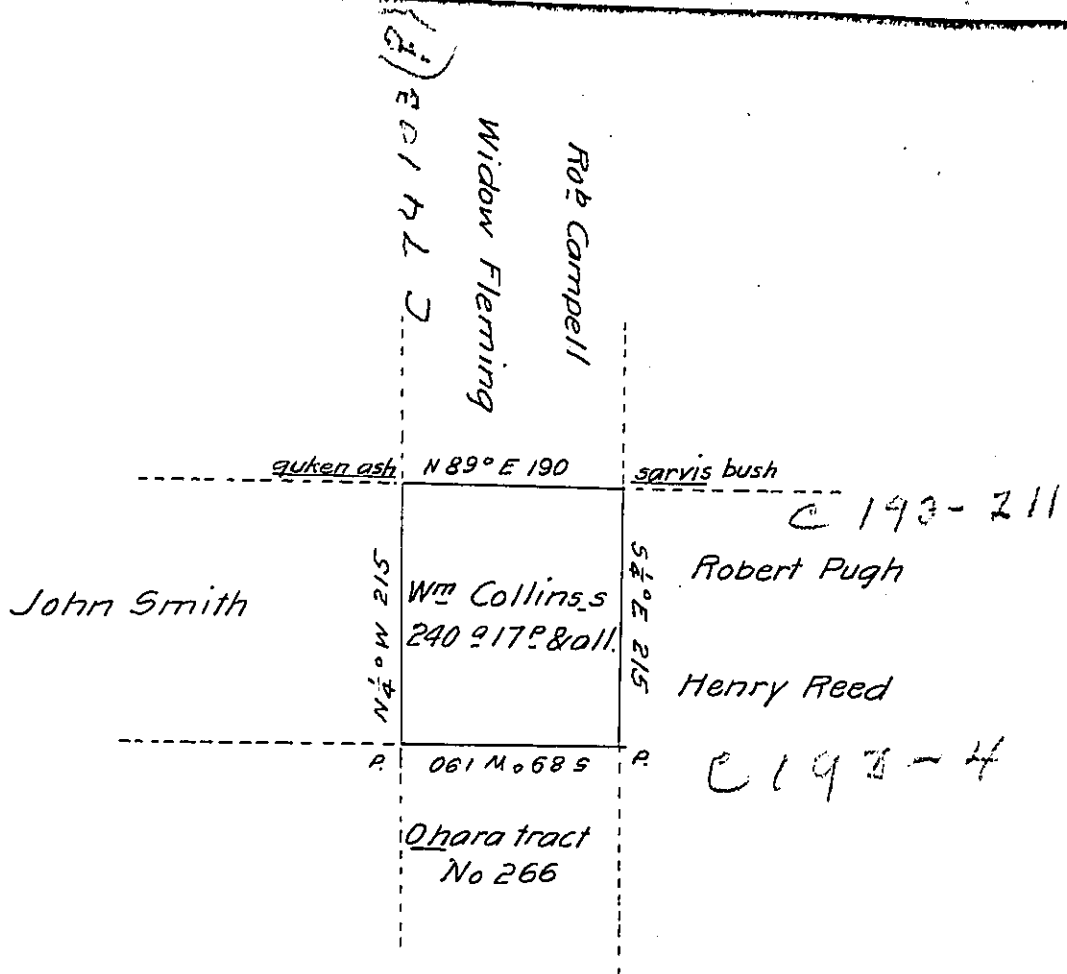 Widow Fleming
Rob Campell
quken ash
N 89° E 190
sarvis bush
C 193-211
John Smith
N¼° W 215
Wm Collins,s
240 a 17 P & all.
S¼° E 215
Robert Pugh
Henry Reed
P.
S 89° W 190
P.
Ohara tract
No 266